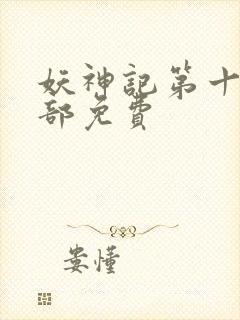 妖神記第十
部免費
娄懂